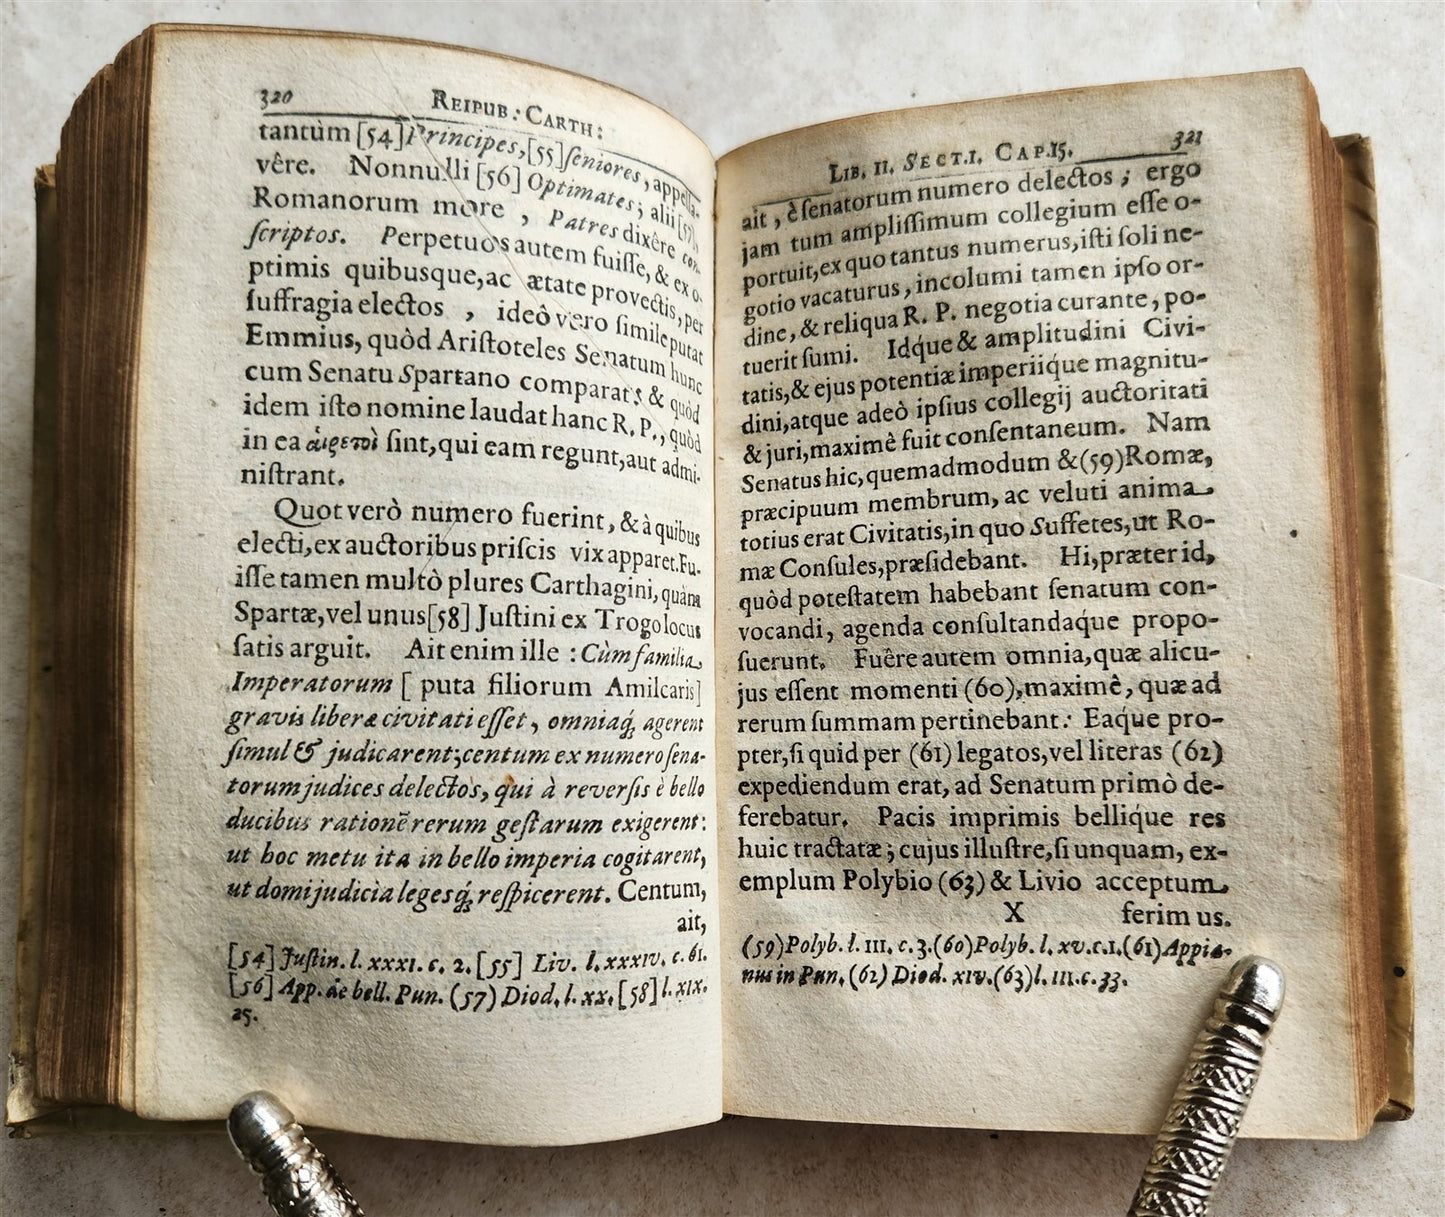 320 REIPUB: CARTH:
tantùm [54] Principes, [55] ſeniores, appella-
vêre. Nonnulli [56] Optimates; alii [57],
Romanorum more, Patres dixêre con-
ſcriptos. Perpetuos autem fuiſſe, & ex o-
ptimis quibusque, ac ætate provectis, per
ſuffragia electos, ideò vero ſimile putat
Emmius, quòd Ariſtoteles Senatum hunc
cum Senatu Spartano comparat; & quòd
idem iſto nomine laudat hanc R. P., quòd
in ea ἀιρετοὶ ſint, qui eam regunt, aut admi-
niſtrant.
Quot verò numero fuerint, & à quibus
electi, ex auctoribus priſcis vix apparet. Fu-
iſſe tamen multò plures Carthagini, quàm
Spartæ, vel unus [58] Juſtini ex Trogo locus
ſatis arguit. Ait enim ille: Cùm familia
Imperatorum [puta filiorum Amilcaris]
gravis liberæ civitati eſſet, omniaq́; agerent
ſimul & judicarent; centum ex numero ſena-
torum judices delectos, qui à reverſis è bello
ducibus rationẽ rerum geſtarum exigerent:
ut hoc metu ita in bello imperia cogitarent,
ut domi judicia legesq́; reſpicerent. Centum,
ait,
[54] Juſtin. l. XXXI. c. 2. [55] Liv. l. XXXIV. c. 61.
[56] App. de bell. Pun. (57) Diod. l. XX. [58] l. XIX.
25.
LIB. II. SECT. I. CAP. 15. 321
ait, è ſenatorum numero delectos; ergo
jam tum ampliſſimum collegium eſſe o-
portuit, ex quo tantus numerus, iſti ſoli ne-
gotio vacaturus, incolumi tamen ipſo or-
dine, & reliqua R. P. negotia curante, po-
tuerit ſumi. Idq́ue & amplitudini Civi-
tatis, & ejus potentiæ imperiiq́ue magnitu-
dini, atque adeò ipſius collegij auctoritati
& juri, maximè fuit conſentaneum. Nam
Senatus hic, quemadmodum & (59) Romæ,
præcipuum membrum, ac veluti anima
totius erat Civitatis, in quo Suffetes, ut Ro-
mæ Conſules, præſidebant. Hi, præter id,
quòd poteſtatem habebant ſenatum con-
vocandi, agenda conſultandaq́ue propo-
ſuerunt. Fuêre autem omnia, quæ alicu-
jus eſſent momenti (60), maximè, quæ ad
rerum ſummam pertinebant: Eaq́ue pro-
pter, ſi quid per (61) legatos, vel literas (62)
expediendum erat, ad Senatum primò de-
ferebatur. Pacis imprimis belliq́ue res
huic tractatæ; cujus illuſtre, ſi unquam, ex-
emplum Polybio (63) & Livio acceptum
X ferimus.
(59) Polyb. l. III. c. 3. (60) Polyb. l. XV. c. 1. (61) Appia-
nus in Pun. (62) Diod. XIV. (63) l. III. c. 33.